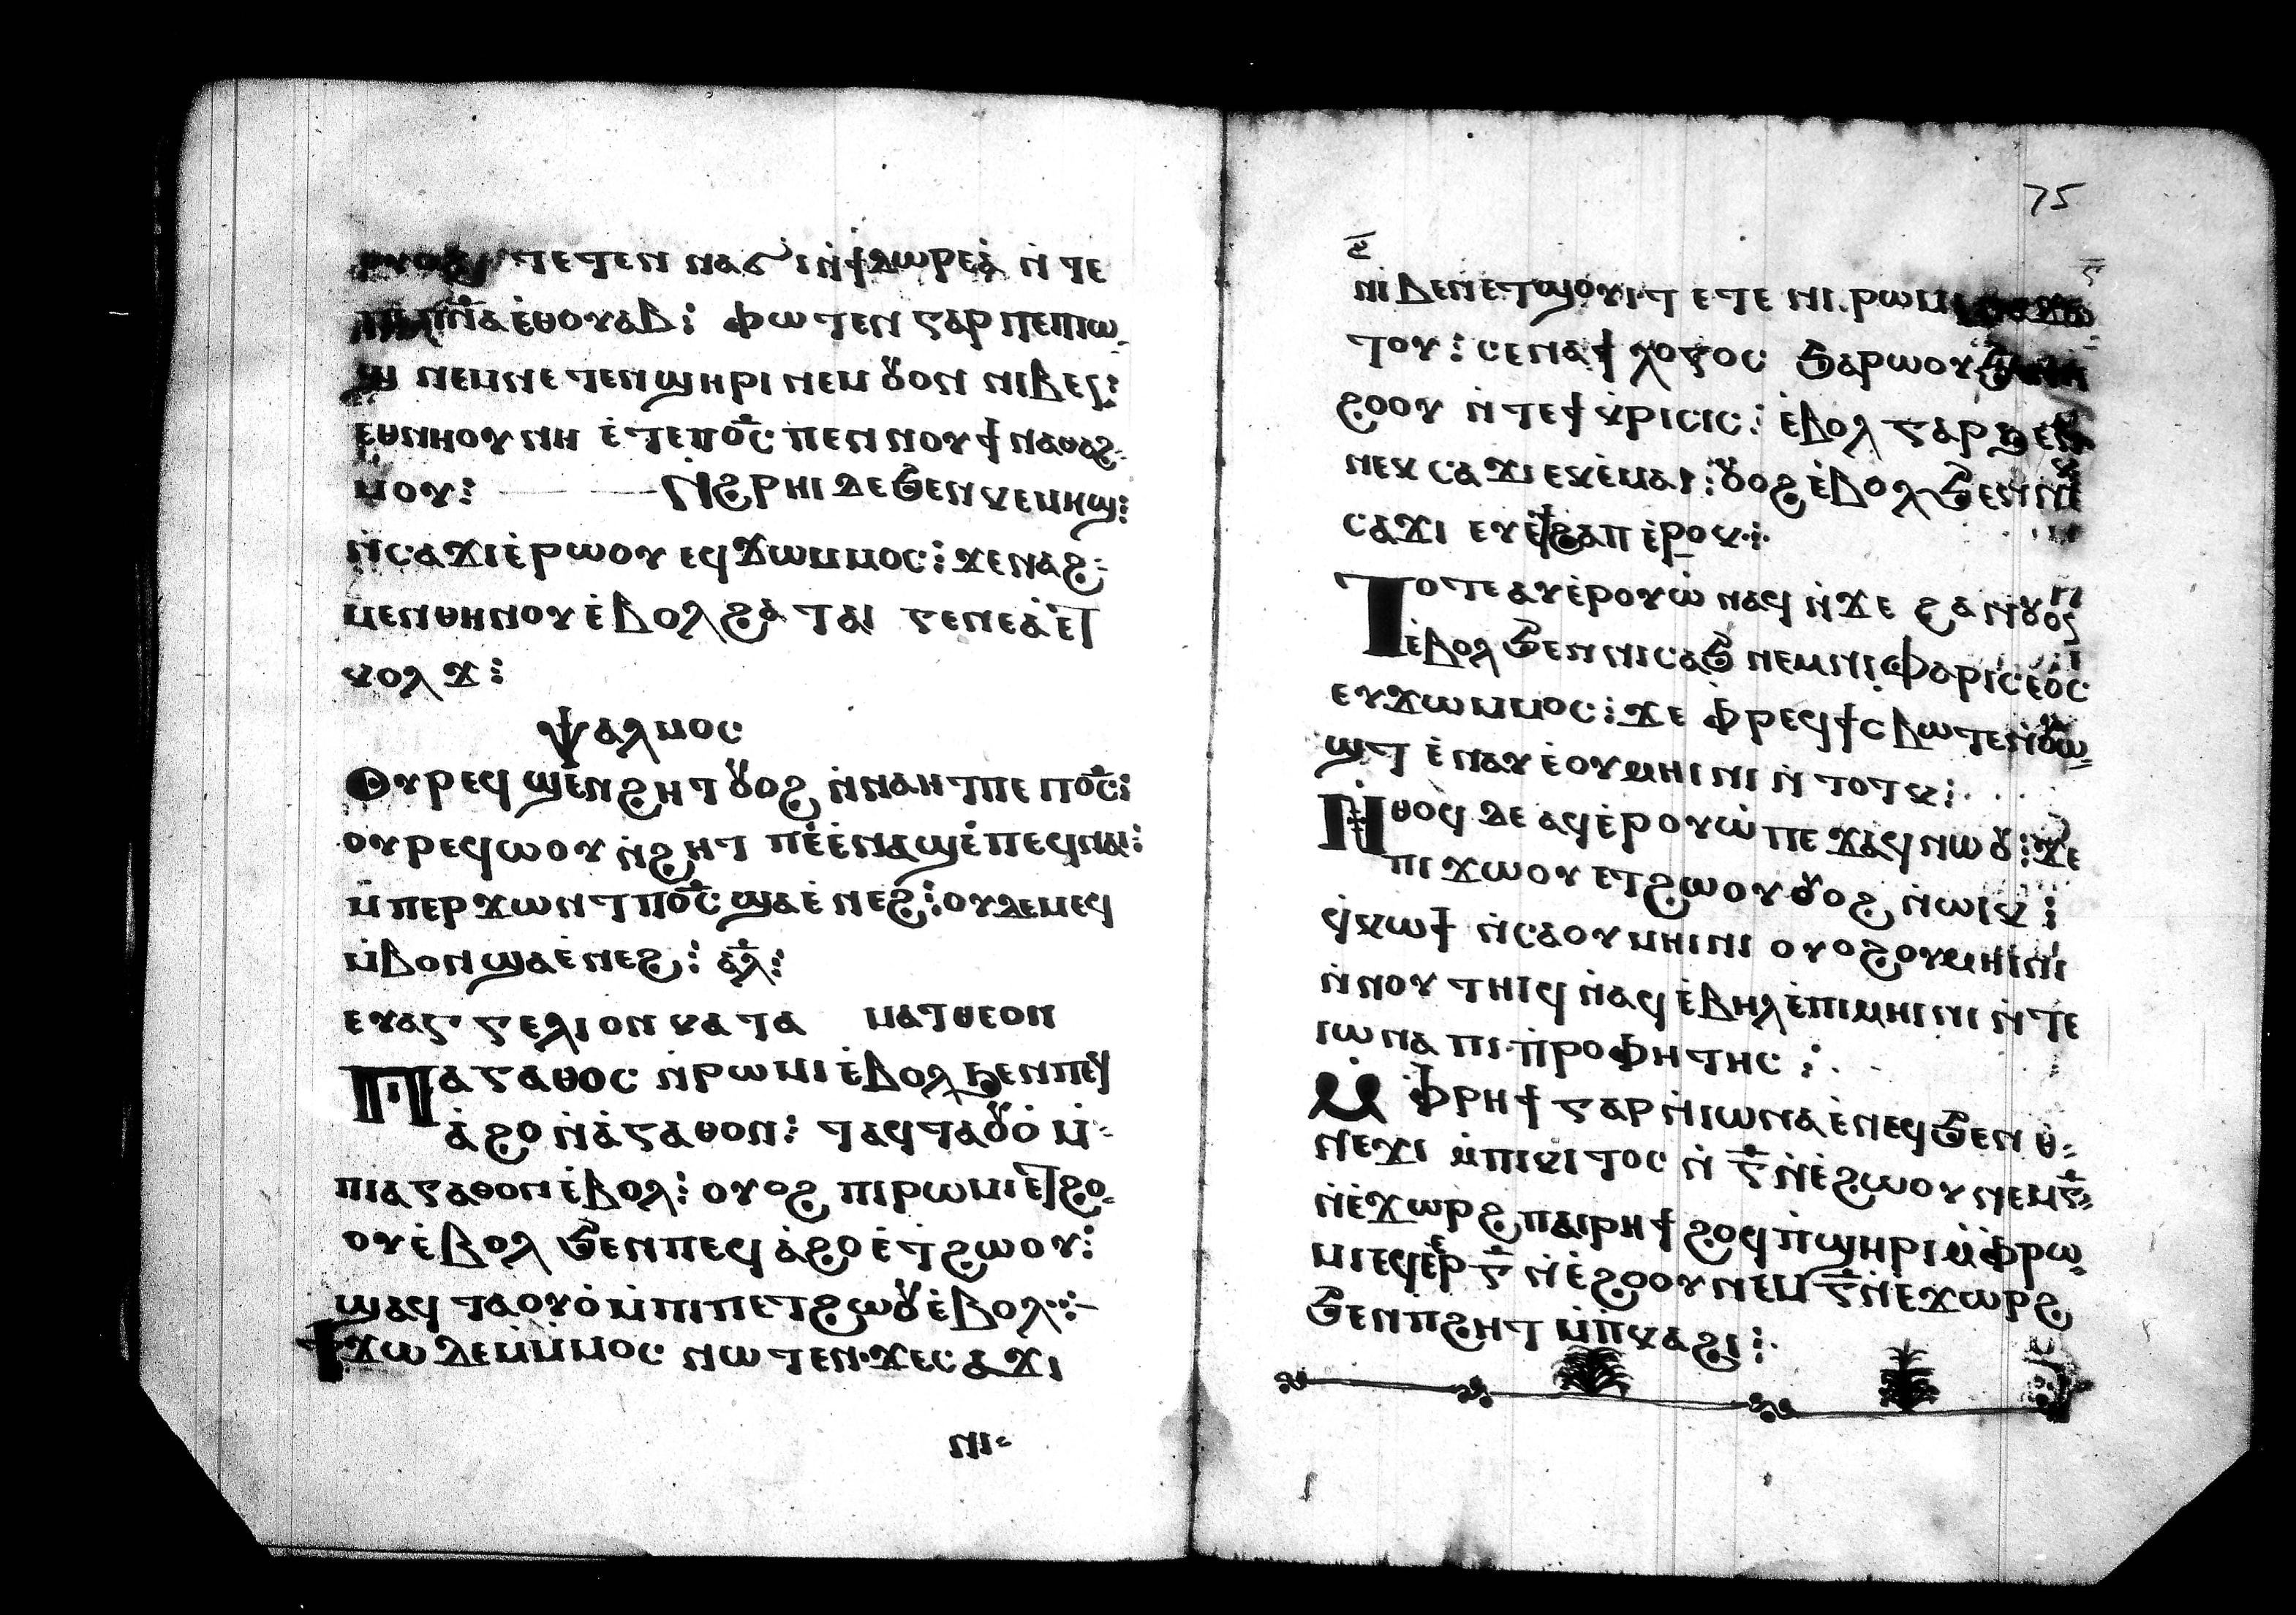 ⲧⲉⲧⲉⲛ ⲛⲁϭⲓ ⲛ̀ϯⲇⲱⲣⲉⲁ̀ ⲛ̀ ⲧⲉ
ⲡⲛ̅ⲁ ⲉ̀ⲑⲟⲩⲁⲃ⁝ ⲫⲱ ⲧⲉⲛ ⲅⲁⲣ ⲡⲉⲡⲓⲱ
ϣ ⲛⲉⲙⲛⲉ ⲧⲉⲛϣⲏⲣⲓ ⲛⲉⲙ ⲟⲩⲟⲛ ⲛⲓⲃⲉⲛ⁝
ⲉⲑⲛⲏⲟⲩ ⲛⲏ ⲉ̀ⲧⲉⲡⲟ̅ⲥ̅ ⲡⲉⲛ ⲛⲟⲩϯ ⲛⲁⲑⲁϩ
ⲙⲟⲩ⁝ ⲛ̀ϩⲣⲏⲓ ⲇⲉ ϧⲉⲛ ⲕⲉⲙⲏϣ⁝
ⲛ̀ⲥⲁϫⲓ ⲉ̀ⲣⲱⲟⲩ ⲉϥϫⲱⲙⲙⲟⲥ⁝ ϫⲉ ⲛⲁϩ
ⲙⲉⲛⲑⲏⲛⲟⲩ ⲉ̀ⲃⲟⲗ ϩⲁ ⲧⲁⲓ ⲅⲉⲛⲉⲁ̀ ⲉ̀ⲧ
ⲕⲟⲗϫ⁝
ⲯⲁⲗⲙⲟⲥ
ⲟⲩⲣⲉϥϣⲉⲛϩⲏⲧ ⲟⲩⲟϩ ⲛ̀ⲛⲁⲏⲧ ⲡⲉ ⲡⲟ̅ⲥ̅⁝
ⲟⲩⲣⲉϥⲱⲟⲩ ⲛ̀ϩⲏⲧ ⲡⲉ ⲉ̀ⲛⲁϣⲉ̀ ⲡⲉϥⲛⲁⲓ⁝
ⲙ̀ⲡⲉⲣϫⲱⲛⲧ ⲡⲟ̅ⲥ̅ ϣⲁⲉ̀ⲛⲉϩ⁝ ⲟⲩⲇⲉ ⲙⲉϥ
ⲙ̀ⲃⲟⲛ ϣⲁⲉ̀ⲛⲉϩ⁝ ⲁ̅ⲗ̅⁝
ⲉⲩⲁⲅⲅⲉⲗⲓⲟⲛ ⲕⲁⲧⲁ ⲙⲁⲧⲑⲉⲟⲛ
ⲡⲁⲅⲁⲑⲟⲥ ⲛ̀ⲣⲱⲙⲓ ⲉ̀ⲃⲟⲗ ϧⲉⲛ ⲡⲉϥ
ⲁ̀ϩⲟ ⲛ̀ⲁ̀ⲅⲁⲑⲟⲛ⁝ ϣⲁϥⲧⲁⲟⲩⲟ̀ ⲙ̀
ⲡⲓⲁⲅⲁⲑⲟⲛ ⲉ̀ⲃⲟⲗ⁝ ⲟⲩⲟϩ ⲡⲓⲣⲱⲙⲓ ⲉⲧϩⲟ
ⲟⲩ ⲉ̀ⲃⲟⲗ ϧⲉⲛ ⲡⲉϥ ⲁ̀ϩⲟ ⲉ̀ⲧϩⲱⲟⲩ⁝
ϣⲁϥⲧⲁⲟⲩⲟ̀ ⲙ̀ⲡⲓⲡⲉⲧϩⲱⲟⲩ ⲉ̀ⲃⲟⲗ⁘
ϯϫⲱ ⲇⲉ ⲙ̀ⲙⲟⲥ ⲛⲱⲧⲉⲛ ϫⲉ ⲥⲁϫⲓ
ⲛⲓ
75
ⲛⲓⲃⲉⲛ ⲉⲧϣⲟⲩⲓⲧ ⲉⲧⲉ ⲛⲓⲣⲱⲙⲓ
ⲧⲟⲩ⁝ ⲥⲉⲛⲁϯ ⲗⲟⲅⲟⲥ ϧⲁⲣⲱⲟⲩ
ϩⲟⲟⲩ ⲛ̀ⲧⲉϯ ⲕⲣⲓⲥⲓⲥ⁝ ⲉ̀ⲃⲟⲗ ⲅⲁⲣ ϧⲉⲛ
ⲛⲉⲕ ⲥⲁϫⲓ ⲉⲕⲉ̀ⲙⲁⲓ⁝ ⲟⲩⲟϩ ⲉ̀ⲃⲟⲗ ϧⲉⲛ ⲛⲓ
ⲥⲁϫⲓ ⲉⲩⲉ̀ϯϩⲁⲡ ⲉ̀ⲣⲟⲕ⁘
ⲧⲟⲧⲉ ⲁⲩⲉ̀ⲣⲟⲩⲱ̀ ⲛⲁϥ ⲛ̀ϫⲉ ϩⲁⲛⲟⲩⲟⲛ
ⲉ̀ⲃⲟⲗ ϧⲉⲛ ⲛⲓⲥⲁϧ ⲛⲉⲙ ⲛⲓⲫⲁⲣⲓⲥⲉⲟⲥ
ⲉⲩϫⲱⲙⲙⲟⲥ⁝ ϫⲉ ⲫ̀ⲣⲉϥϯⲥⲃⲱ ⲧⲉⲛⲟⲩⲱ
ϣⲧ ⲉ̀ⲛⲁⲩ ⲉ̀ⲟⲩⲙⲏⲓⲛⲓ ⲛ̀ⲧⲟⲧⲕ⁝
ⲛ̀ⲑⲟϥ ⲇⲉ ⲁϥⲉ̀ⲣⲟⲩⲱ̀ ⲡⲉϫⲁϥ ⲛⲱⲟⲩ⁝ ϫⲉ
ⲡⲓϫⲱⲟⲩ ⲉⲧϩⲱⲟⲩ ⲟⲩⲟϩ ⲛ̀ⲱⲓⲕ⁝
ϥ̀ⲕⲱϯ ⲛ̀ⲥⲁ ⲟⲩⲙⲏⲓⲛⲓ ⲟⲩⲟϩ ⲟⲩⲙⲏⲓⲛⲓ
ⲛ̀ⲛⲟⲩⲧⲏⲓϥ ⲛ̀ⲁϥ ⲉ̀ⲃⲏⲗ ⲉ̀ⲡⲓⲙⲏⲓⲛⲓ ⲛ̀ⲧⲉ
ⲓⲱⲛⲁ ⲡⲓⲡ̀ⲣⲟⲫⲏⲧⲏⲥ⁝
ⲙ̀ⲫ̀ⲣⲏϯ ⲅⲁⲣ ⲛ̀ⲓⲱⲛⲁ ⲉ̀ⲛⲉϥ ϧⲉⲛ ⲑ̀
ⲛⲉϫⲓ ⲙ̀ⲡⲓⲕⲓⲧⲟⲥ ⲛ̀ ⲅ̅ ⲛ̀ⲉ̀ϩⲱⲟⲩ ⲛⲉⲙ ⲅ̅
ⲛ̀ⲉ̀ϫⲱⲣϩ ⲡⲁⲓⲣⲏϯ ϩⲟϥ ⲡ̀ϣⲏⲣⲓ ⲙ̀ⲫ̀ⲣⲱ
ⲙⲓ ⲉϥⲉ̀ⲣ ⲅ̅ ⲛ̀ⲉ̀ϩⲟⲟⲩ ⲛⲉⲙ ⲅ̅ ⲛ̀ⲉ̀ϫⲱⲣϩ
ϧⲉⲛ ⲡϩⲏⲧ ⲙ̀ⲡ̀ⲕⲁϩⲓ⁝